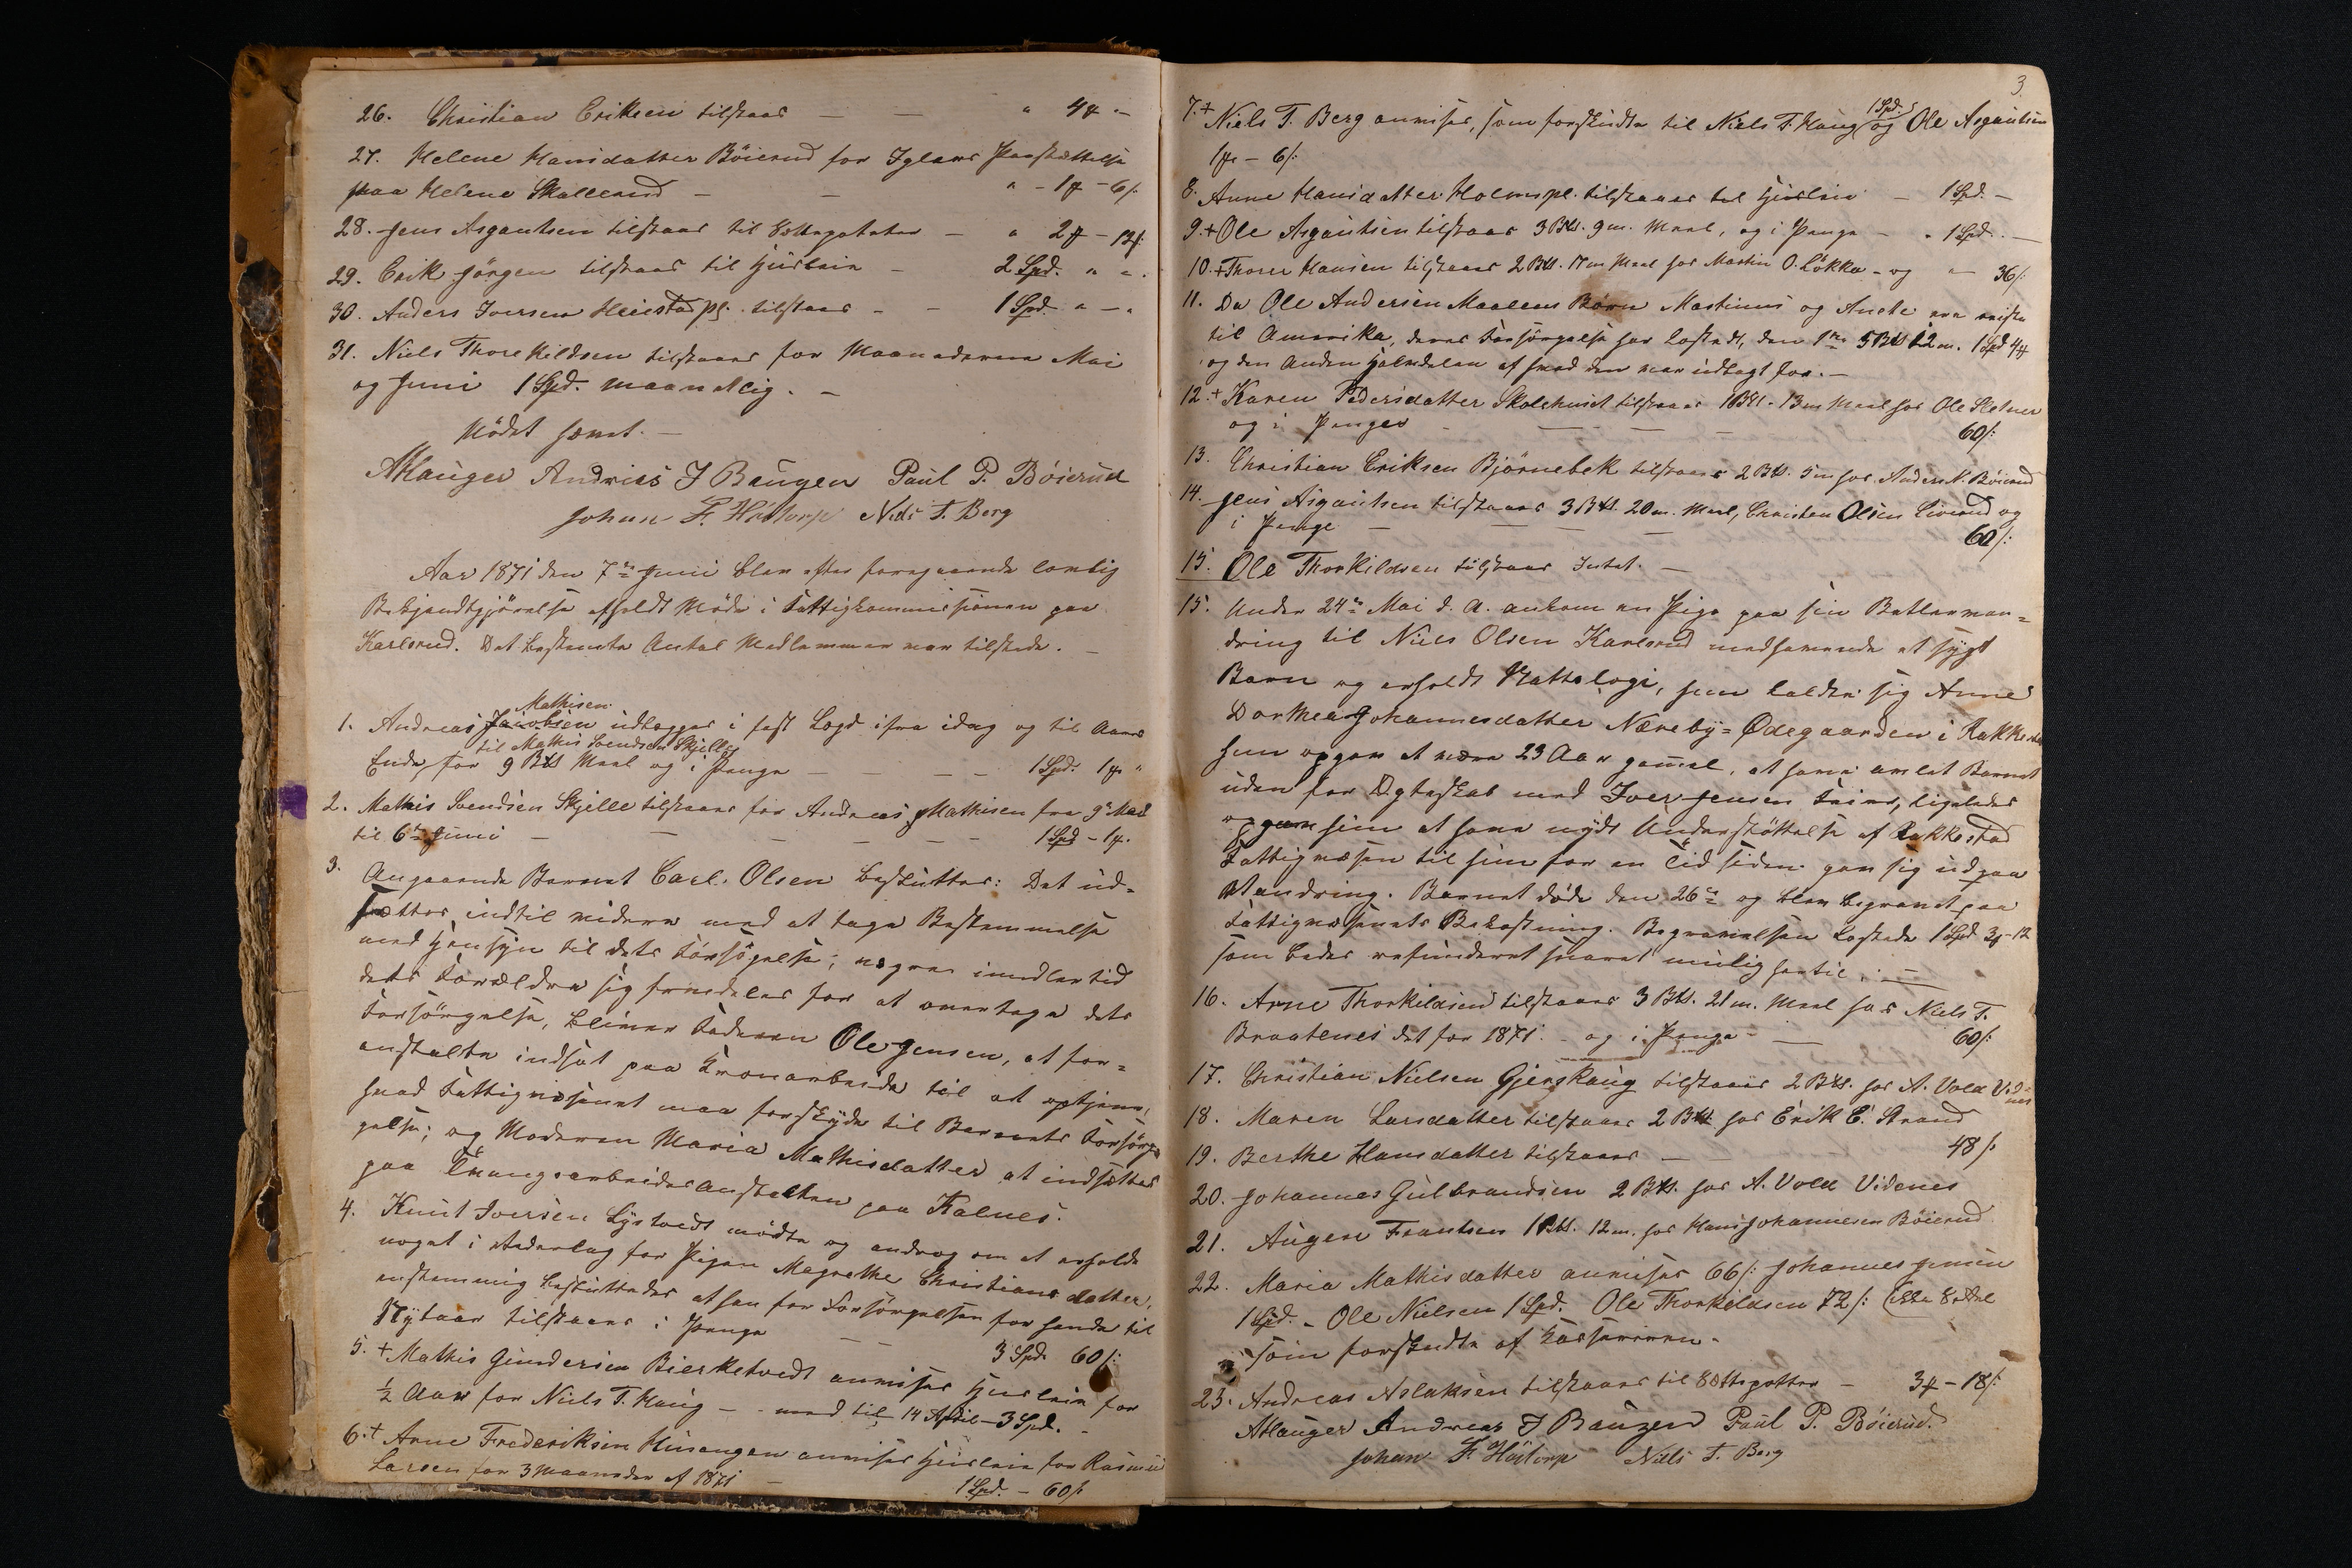 26. Christian Eriksen tilstaaes — — " 4 ort "
27. Helene Hansdatter Böierud for Iglers Paasættelse
paa Helene Skallerud — — " - 1 ort - 6 s:
28. Jens Asgautsen tilstaaes til Sættepoteter — " 2 ort - 12 s:
29. Erik Jörgen tilstaaes til Huusleie — 2 Spd. " "
30. Anders Iversen Heiestadpl. tilstaaes — — 1 Spd. " — "
31. Niels Thorekildsen tilstaaes for Maanederne Mai
og Juni 1 Spd. maanedlig. —
Mödet hævet. —
AHauger Andreas J Baugen Paul P. Böierud
Johan F. Höitorp Niels T. Berg
Aar 1871 den 7de Juni blev efter foregaaende lovlig
Bekjendtgjörelse afholdt Möde i Fattigkommissionen paa
Karlsrud. Det bestemte Antal Medlemmer var tilstede. —
Mathisen
1. Andreas Jacobsen udlægges i fast Lægd ifra idag og til Aarets
til Mathis Svendsen Skjelle
Ende, for 9 Btl Maal og i Penge — — — — 1 Spd. 1 ort "
2. Mathis Svendsen Skjelle tilstaaes for Andreas Mathisen fra 9de Mai
til 6te Juni — — — — — 1 Spd - 1 ort.
3. Angaaende Barnet Carl Olsen besluttes: Det ud-
sættes indtil videre med at tage Bestemmelse
med Hensyn til dets Forsörgelse; vægrer imidlertid
dets Forældre sig fremdeles for at overtage dets
Forsörgelse, bliver Faderen Ole Jensen, at for-
anstalte indsat paa Tvangarbeide til at optjene,
hvad Fattigvæsenet maa forskyde til Barnets Forsör-
gelse; og Moderen Maria Mathisdatter at indsættes
paa Tvangsarbeidsanstalten paa Kalnes.
4. Knut Iversen Lystvedt mödte og androg om at erholde
noget i Vederlag for Pigen Magrethe Christiansdatter,
enstemmig besluttedes at han for Forsörgelsen for hende til
Nytaar tilstaaes i Penge — — 3 Spd. 60 s:
5. + Mathis Gundersen Bierketvedt anvises Huusleie for
½ Aar for Niels T. Haug — - med til 14 April — 3 Spd. -
6. + Arne Frederiksen Husengen anvises Huusleie for Rasmus
Larsen for 3 Maaneder af 1871 — 1 Spd. - 60 s:
3
1 Spd.
7. + Niels T. Berg anvises, som forskudte til Niels T. Haug og Ole Asgautsen
1 ort - 6 s:
8. Anne Hansdatter Holmspl. tilstaaes til Huusleie — 1 Spd. -
9. + Ole Asgautsen tilstaaes 3 Btl. 9 m. Maal, og i Penge — " 1 Spd. —
10. + Thorer Hansen tilstaaes 2 Btl. 17 m Maal hos Martin O. Lökke - og " 36 s:
11. Da Ole Andersen Maalens Börn Martinus og Anete ere reiste
til Amerika, deres Forsörgelse har kostet, den 1ste 5 Btl 12 m. 1 Spd 4 ort
og den Anden Halvdelen af hvad den var udlagt for. —
12. + Karen Pedersdatter Skolehuset tilstaaes 1 Btl. 13 m Maal hos Ole Sletner
og i Penger — — — — 60 s:
13. Christian Eriksen Björnebek tilstaaes 2 Btl. 5 m hos Anders N. Böierud
14. Jens Asgautsen tilstaaes 3 Btl. 20 m. Maal, Christen Olsen Liverud og
i Penge — — — 60 s:
15. Ole Thorkildsen tilstaaes Intet. —
15. Under 24de Mai d. A. ankom en Pige paa sin Betlervan-
dring til Niels Olsen Karlsrud medhavende et sygt
Barn og erholdt Nattelogi, hun kaldte sig Anne
Dorthea Johannesdatter Næreby-Ödegaarden i Rakkestad
hun opgav at være 23 Aar gammel, at have avlet Barnet
uden for Ægteskab med Iver Jensen , ligeledes
opgav hun at have nydt Understöttelse af Rakkestad
Fattigvæsen til hun for en Tid siden gav sig ud paa
Vandring. Barnet döde den 26de og blev begravet paa
Fattigvæsenets Bekostning. Begravelsen kostede 1 Spd 3 ort - 12
som bedes refunderet snarest mulig hertil. —
16. Arne Thorkildsen tilstaaes 3 Btl. 21 m. Maal hos Niels T.
Braatenes det for 1871 - og i Penge — 60 s:
17. Christian Nielsen Gjerskaug tilstaaes 2 Btl. hos A. Vold Vidnes
18. Maren Larsdatter tilstaaes 2 Btl. hos Erik E. Strand
19. Berthe Hansdatter tilstaaes — — 48 s:
20. Johannes Gulbrandsen 2 Btl. hos A. Vold Videnes
21. Augen Frantsen 1 Btl. 12 m. hos Hans Johannesen Böierud
22. Maria Mathisdatter anvises 66 s: Johannes Jensen
1 Spd. - Ole Nielsen 1 Spd. Ole Thorkildsen 72 s:
som forskudte af Kassereren. -
23. Andreas Aslaksen tilstaaes til Sættepotter — 3 ort - 18 s:
AHauger Andreas J Baugen Paul P. Böierud.
Johan F. Höitorp Niels T. Berg